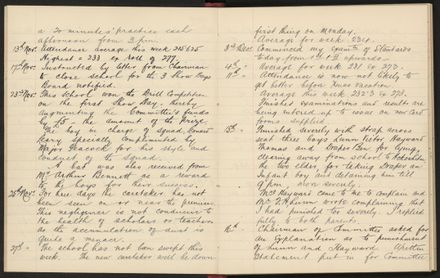 a 20 minutes' practice each
afternoon from 3 p.m.
13th Nov. Attendance average this week 215.625
Highest = 233 on roll of 277
17th Nov. Instructed by letter from Chairman
to close school for the 3 Show days
Board notified.
23rd Nov. This school won the Drill Competition
on the first Show day, hereby
augmenting the Committee's funds
by £5 - the amount of the Prize.
The boy in charge of squad, Ernest
Carey specially complimented by
Major Peacock for his style and
conduct of the squad.
A bat was also received from
Mr Arthur Bennett as a reward
to the boys for their success.
For three days the caretaker has not
been seen on or near the premises.
This negligence is not conducive to
the health of scholars or teachers
as the accumulation of dust is
quite a menace.
27th = The school has not been swept this
week. The new caretaker will be down
first thing on Monday.
Average for week
Commenced my exam of Standards
today from Std II upwards
4th = Average for week 221 on 273.
11th = Attendance is now not likely to
get better before Xmas vacation
Average this week 232.3 on 273.
Finished examinations and results are
being entered up to issue on new Card
form - supplied.
15th = Punished severely with strap across
seat three boys
Thomas and for lying,
clearing away from school
the two elder for taking
Infant boy and detaining him till
9 p.m. more severely.
Mrs Hayward came to me to complain and
Mr wrote complaining that
I had punished too severely. I replied
fully to both parents.
16th Chairman of Committee asked for
an Explanation re to punishment
of and Hayward. Written
Statement put in for Committee.